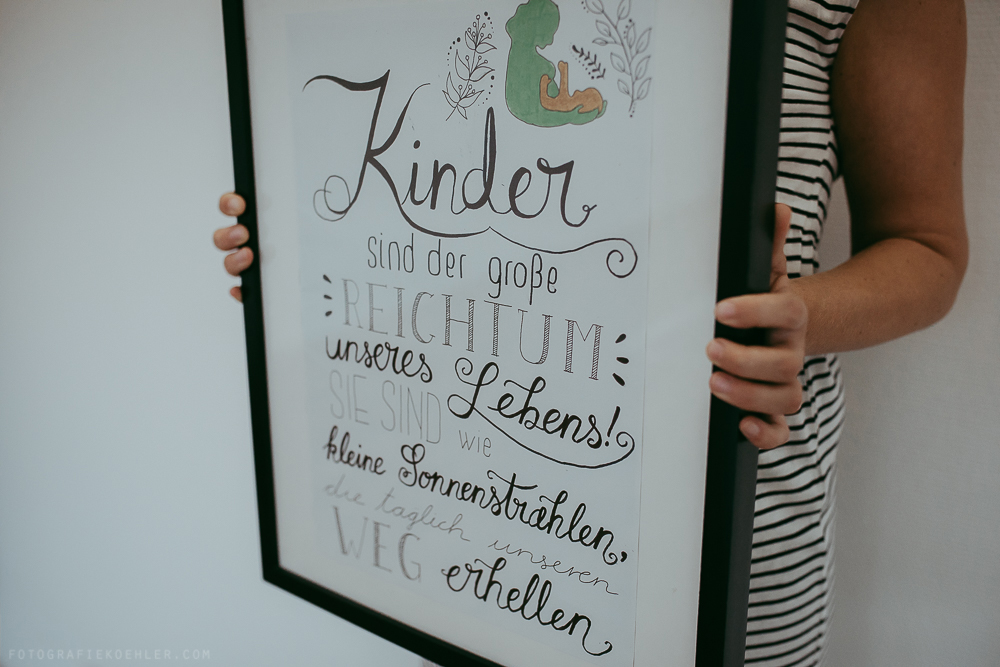 Kinder
sind der große
REICHTUM
unseres Lebens!
SIE SIND wie
kleine Sonnenstrahlen,
die täglich unseren
WEG erhellen
FOTOGRAFIEKOEHLER.COM